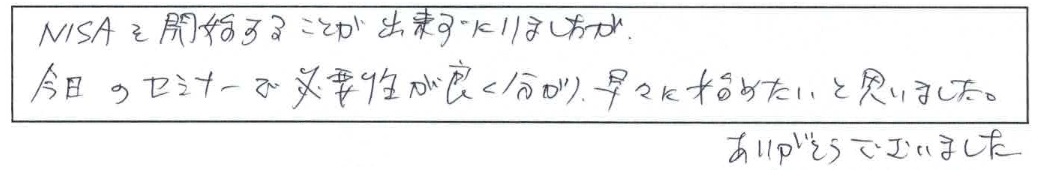 NISAを開始することが出来ずにいましたが、
今日のセミナーで必要性が良く分かり、早々に始めたいと思いました。
ありがとうございました